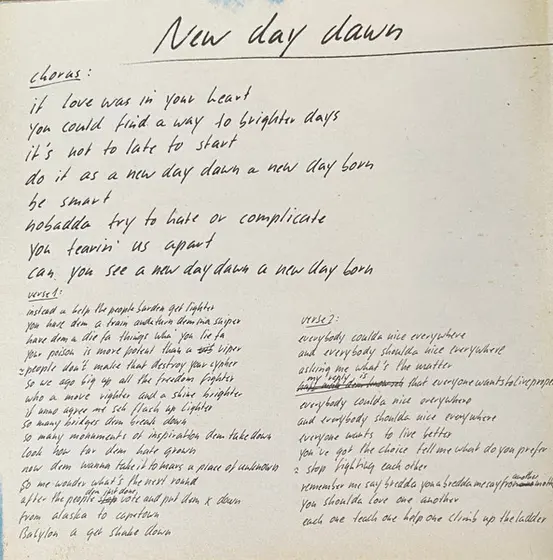 New day dawn
chorus:
if love was in your heart
you could find a way to brighter days
it's not to late to start
do it as a new day dawn a new day born
be smart
nobadda try to hate or complicate
you tearin' us apart
can you see a new day dawn a new day born
verse 1:
instead a help the people burden get lighter
you have dem a train and a turn dem ina sniper
have dem a die fa things wha' you lie fa
your poison is more potent than a viper
people don't make that destroy your cypher
so we ago big up all the freedom fighter
who a move righter and a shine brighter
if unno agree me seh flash up lighter
so many bridges dem break down
so many monuments of inspiration dem take down
look how far dem hate grown
now dem wanna take it to mars a place of unknown
so me wonder what's the next round
after the people dem just done vote and put dem x down
from alaska to capetown
Babylon a get shake down
verse 2:
everybody coulda nice everywhere
and everybody shoulda nice everywhere
asking me what's the matter
my reply is that everyone wants to live proper
everybody coulda nice everywhere
and everybody shoulda nice everywhere
everyone wants to live better
you've got the choice tell me what do you prefer
2 stop fighting each other
remember me say bredda you a bredda me say from another
you shoulda love one another
each one teach one help one climb up the ladder